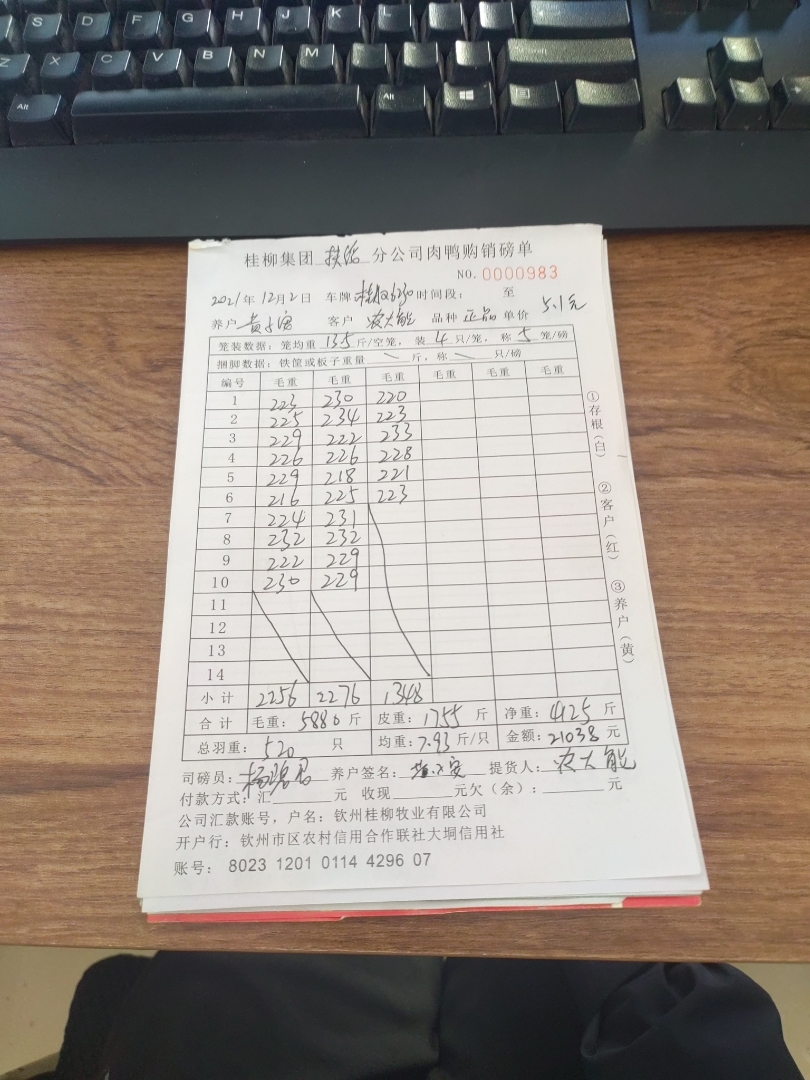 S D F G H J K L
Z X C V B N M
Alt Alt
桂柳集团 扶绥 分公司肉鸭购销磅单
NO. 0000983
2021年12月2日 车牌 时间段: 至
养户 黄 客户 农大能 品种 正品 单价 5.1元
笼装数据: 笼均重 13.5 斤/空笼, 装 4 只/笼, 称 5 笼/磅
捆脚数据: 铁筐或板子重量 \ 斤, 称 \ 只/磅
编号 毛重 毛重 毛重 毛重 毛重 毛重
1 223 230 220
2 225 234 223
3 229 222 233
4 226 226 228
5 229 218 221
6 216 225 223
7 224 231
8 232 232
9 222 229
10 230 229
11
12
13
14
小计 2256 2276 1348
合计 毛重: 5880 斤 皮重: 1755 斤 净重: 4125 斤
总羽重: 520 只 均重: 7.93 斤/只 金额: 21038 元
司磅员: 养户签名: 提货人: 农大能
付款方式: 汇 元 收现 元欠(余): 元
公司汇款账号, 户名: 钦州桂柳牧业有限公司
开户行: 钦州市区农村信用合作联社大垌信用社
账号: 8023 1201 0114 4296 07
①存根(白)
②客户(红)
③养户(黄)